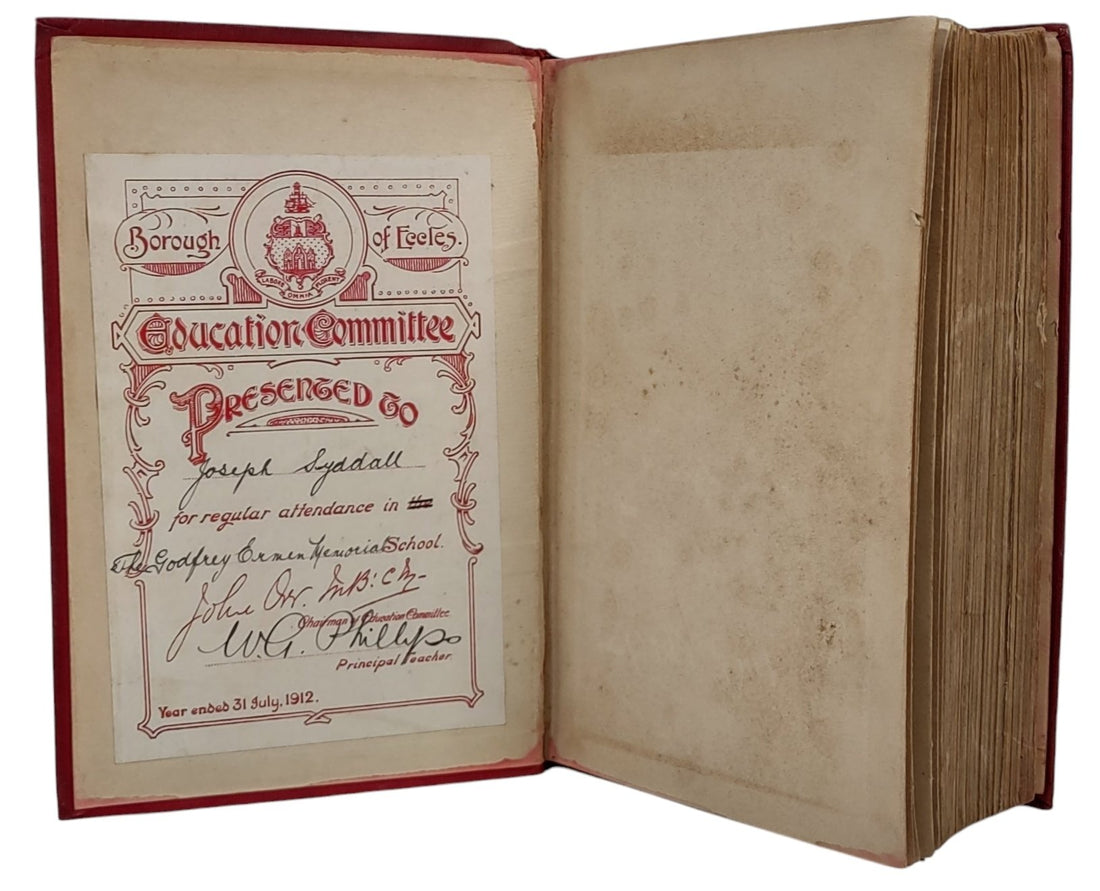 Borough of Eccles.
LABORE OMNIA FLORENT
Education Committee
PRESENTED TO
Joseph Syddall
for regular attendance in the
The Godfrey Ermen Memorial School.
John Orr. M.B: C.M.
Chairman of Education Committee
W.G. Phillips
Principal Teacher.
Year ended 31 July, 1912.